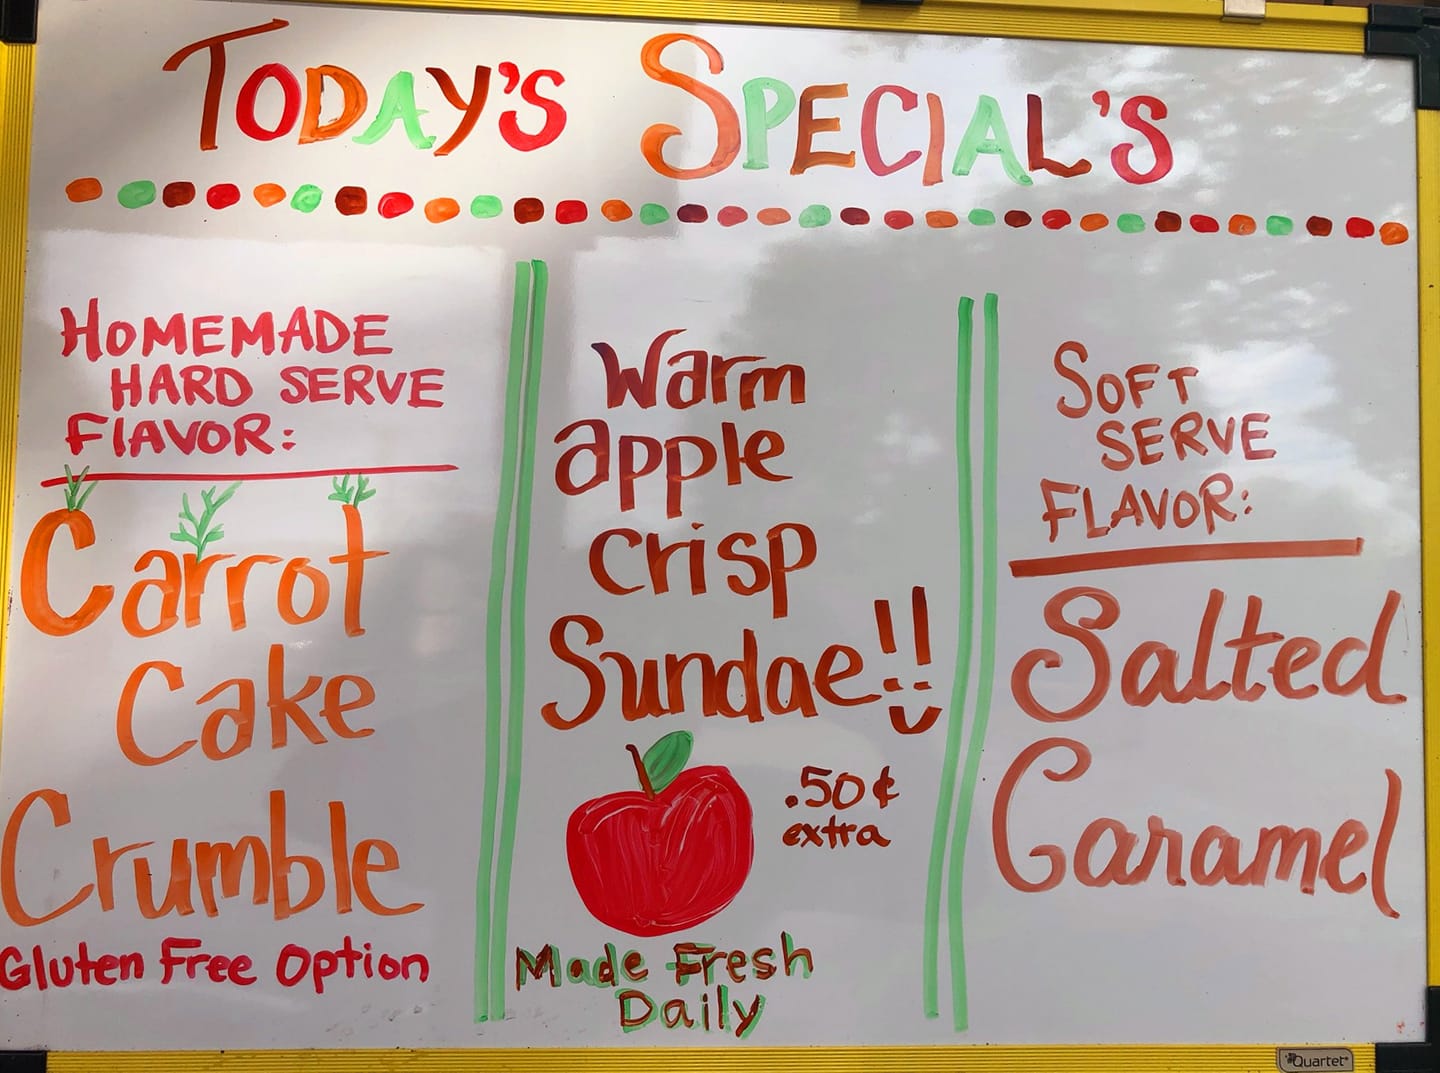 TODAY'S SPECIAL'S
HOMEMADE
HARD SERVE
FlAVOR:
Carrot
Cake
Crumble
Gluten Free Option
Warm
apple
crisp
Sundae!!
.50¢
extra
Made Fresh
Daily
SOFT
SERVE
FLAVOR:
Salted
Caramel
Quartet